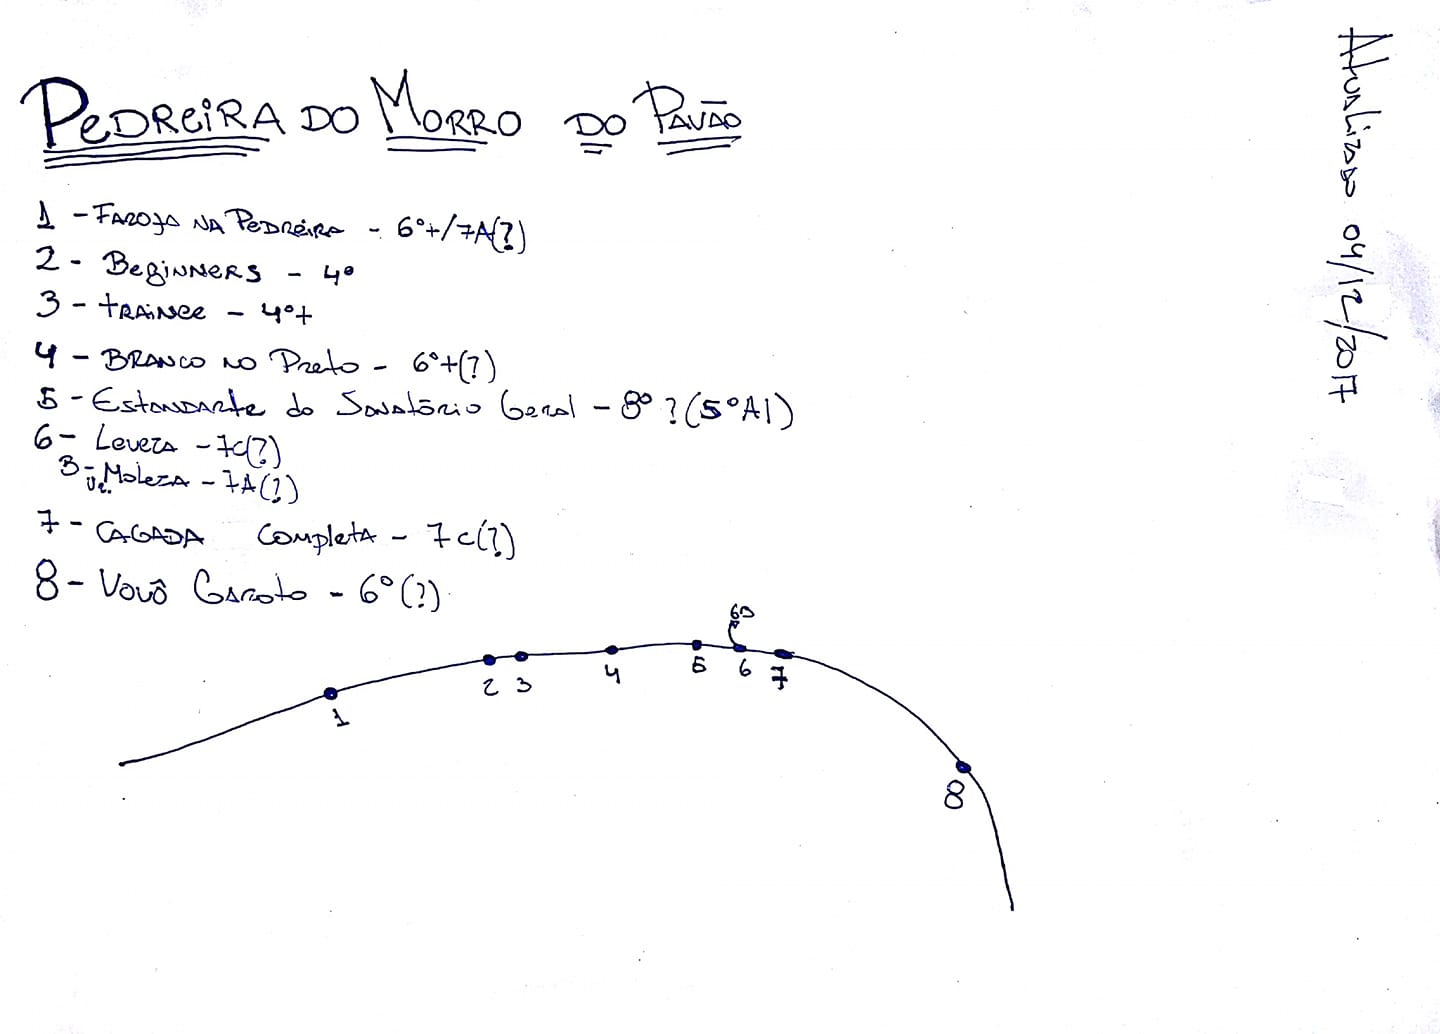 PEDREIRA DO MORRO DO PAVÃO
1 - FAROFA NA PEDREIRA - 6º+/7A(?)
2 - BEGINNERS - 4º
3 - TRAINEE - 4º+
4 - BRANCO NO PRETO - 6º+(?)
5 - ESTANDARTE do SANATÓRIO GERAL - 8º ? (5º A1)
6 - LEVEZA - 7C(?)
B - Vr. MOLEZA - 7A(?)
7 - CAGADA COMPLETA - 7C(?)
8 - VOVÔ GAROTO - 6º (?)
6B
1
2 3
4
5
6
7
8
Atualizado 04/12/2017